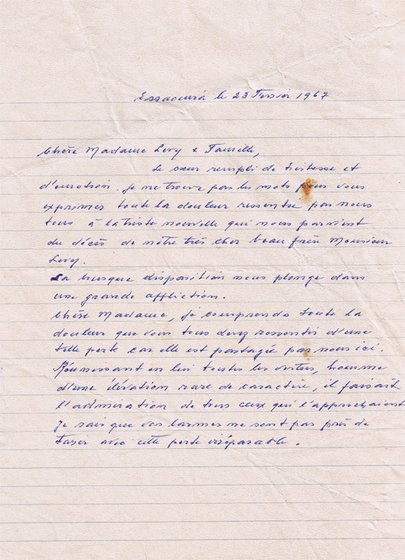 Essaouira le 23 Fevrier 1967
Chère Madame Levy & Famille,
Le cœur rempli de tristesse et
d'émotion. Je ne trouve pas les mots pour vous
exprimer toute la douleur ressentie par nous
tous à la triste nouvelle qui nous parvient
du décès de nôtre très cher beau frère Monsieur
Levy.
La brusque disposition nous plonge dans
une grande affliction.
Chère Madame, Je comprends toute la
douleur que vous tous devez ressentir d'une
telle perte car elle est partagée par nous ici.
en lui toutes les vertus, homme
d'une élévation rare de caractère, il faisait
l'admiration de tous ceux qui l'approchaient
Je sais que vos larmes ne sont pas près de
avec cette perte irréparable.